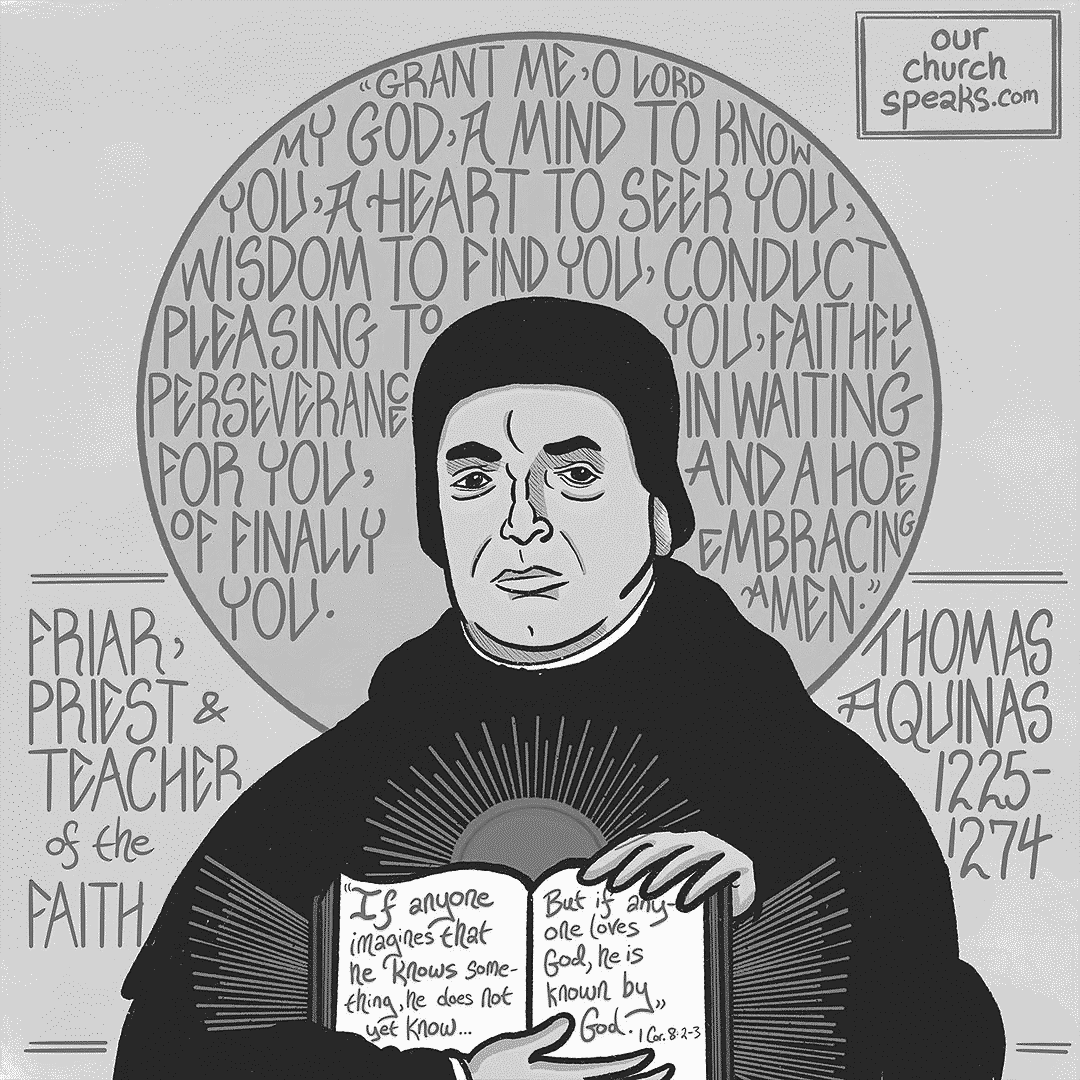 our
church
speaks.com
"GRANT ME, O LORD
MY GOD, A MIND TO KNOW
YOU, A HEART TO SEEK YOU,
WISDOM TO FIND YOU, CONDUCT
PLEASING TO YOU, FAITHFUL
PERSEVERANCE IN WAITING
FOR YOU, AND A HOPE
OF FINALLY EMBRACING
YOU. AMEN."
FRIAR,
PRIEST &
TEACHER
of the
FAITH
THOMAS
AQUINAS
1225-
1274
"If anyone
imagines that
he knows some-
thing, he does not
yet know...
But if any-
one loves
God, he is
known by
God." 1 Cor. 8:2-3